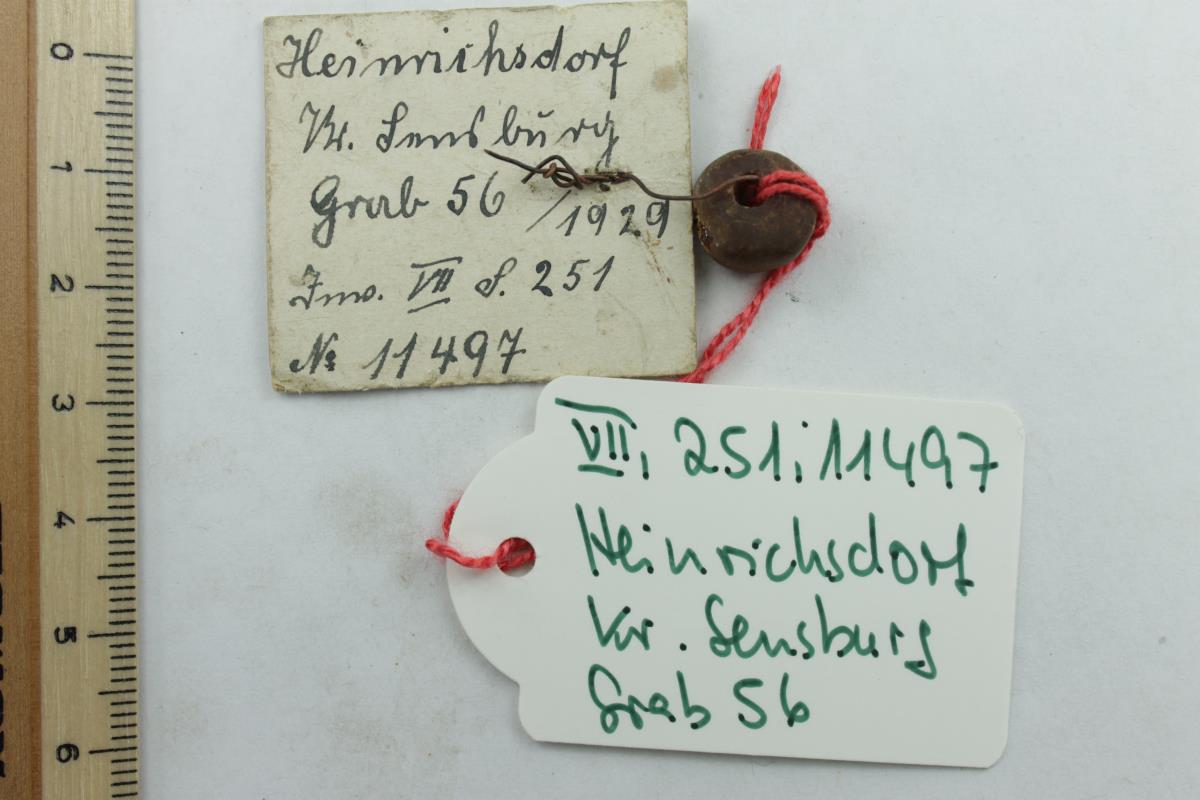 Heinrichsdorf
Kr. Sensburg
Grab 56 /1929
Inv. VII S. 251
№ 11497
VII, 251; 11497
Heinrichsdorf
Kr. Sensburg
Grab 56
0
1
2
3
4
5
6